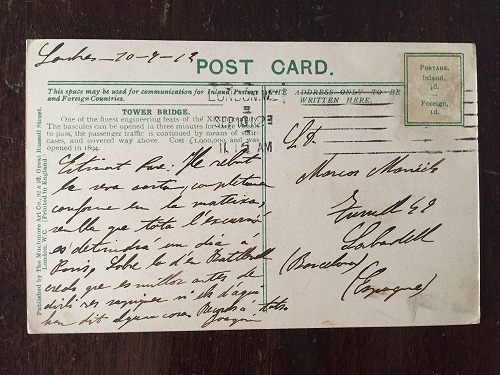 Londres - 10-9-12
POST CARD.
This space may be used for communication for Inland Postage
and Foreign Countries.
THE ADDRESS ONLY TO BE
WRITTEN HERE.
POSTAGE.
Inland,
½d.
Foreign,
1d.
LONDON.W.
11.15 AM
TOWER BRIDGE.
One of the finest engineering feats of the
The bascules can be opened in three minutes for
to pass, the passenger traffic is continued by means of
cases, and covered way above. Cost £1,000,000 and was
opened in 1894.
Published by The Muchmore Art Co., 92 & 93, Great Russell Street,
London, W.C. (Printed in England)
Estimat Pare: He rebut
la seva carta, completament
conforme en la mateixa,
sembla que tota l'excursió
es detindrá un dia a
Paris, Sobre lo d'en Batllevell
credo que es millor antes de
dirli res esperar si els d'aquí
han dit alguna cosa Records á tots
Joaquim
Sr.
Marcos
49
Sabadell
(Barcelona)
(Espagne)